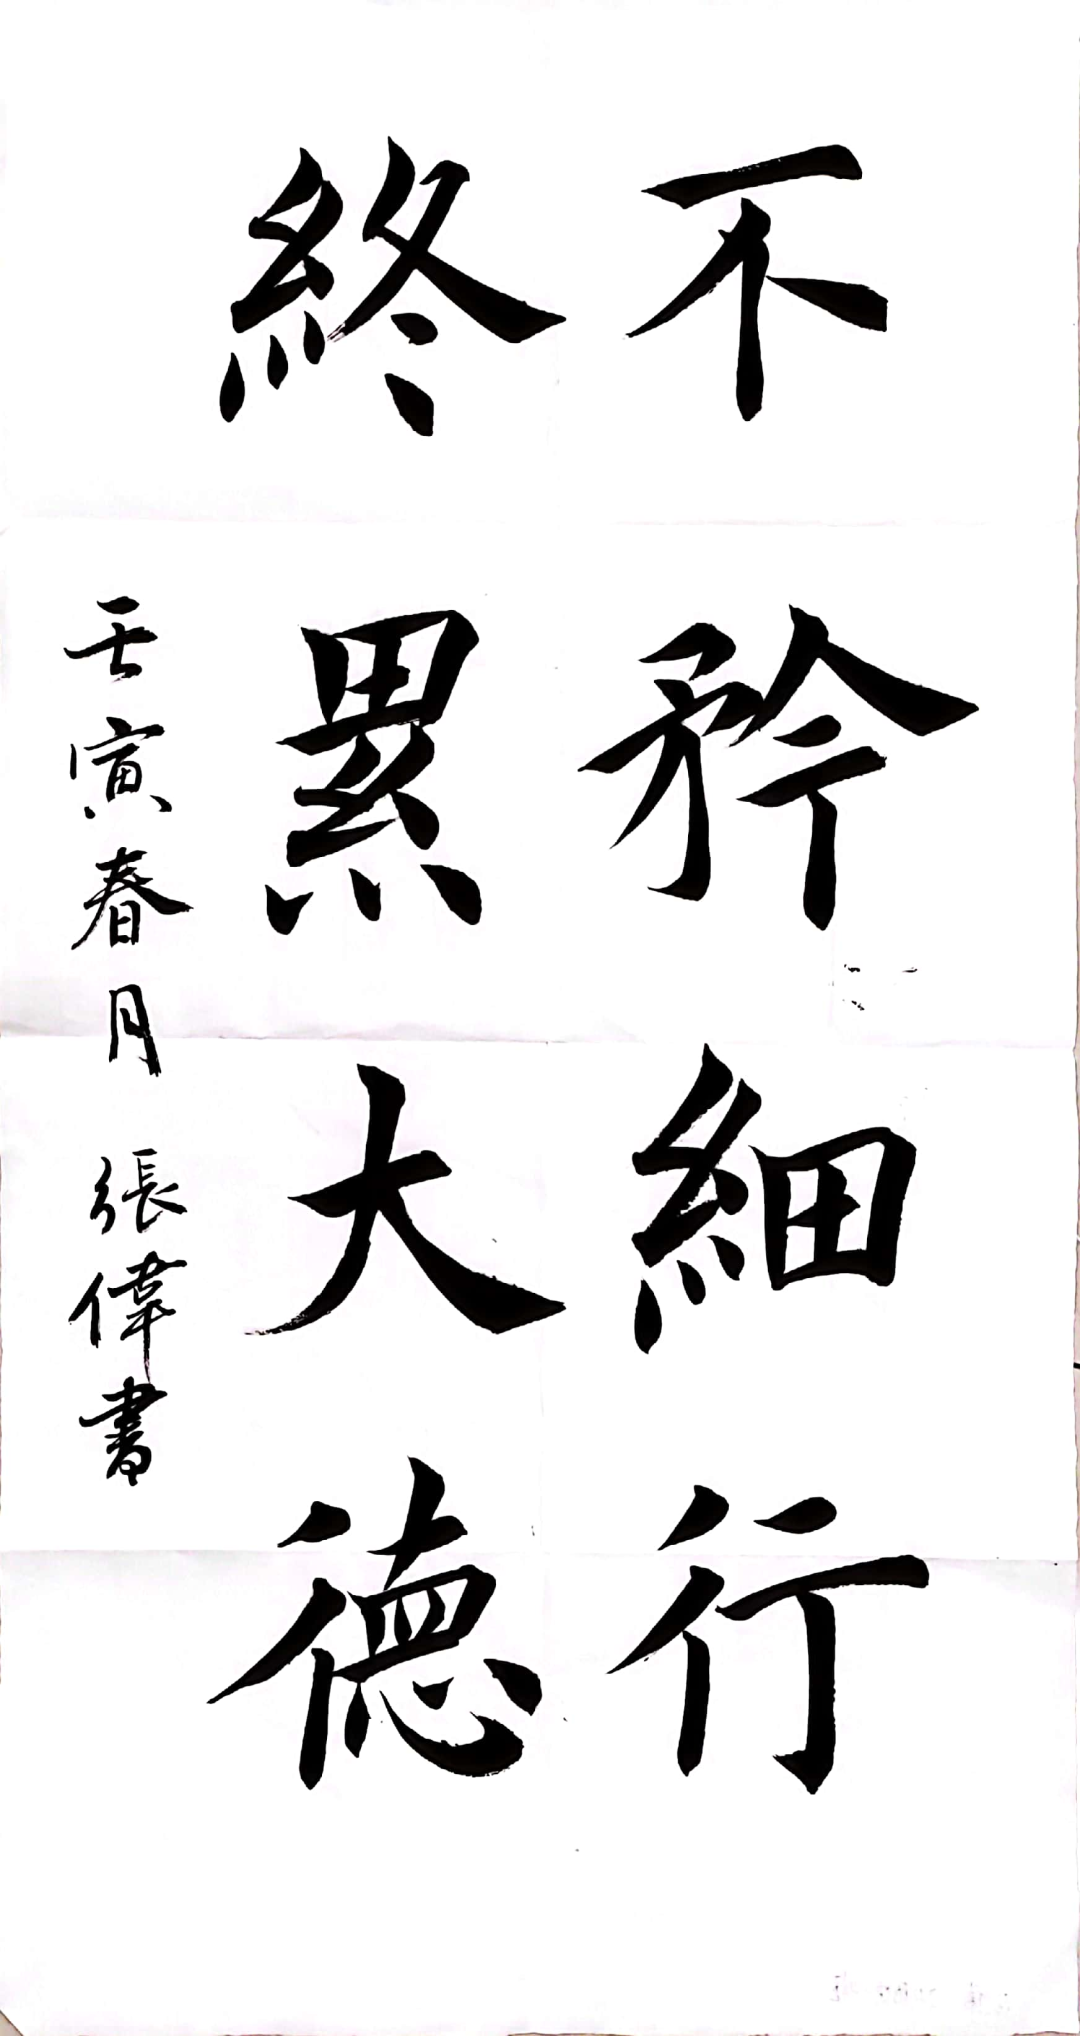 不矜細行
終累大德
壬寅春月 張偉書